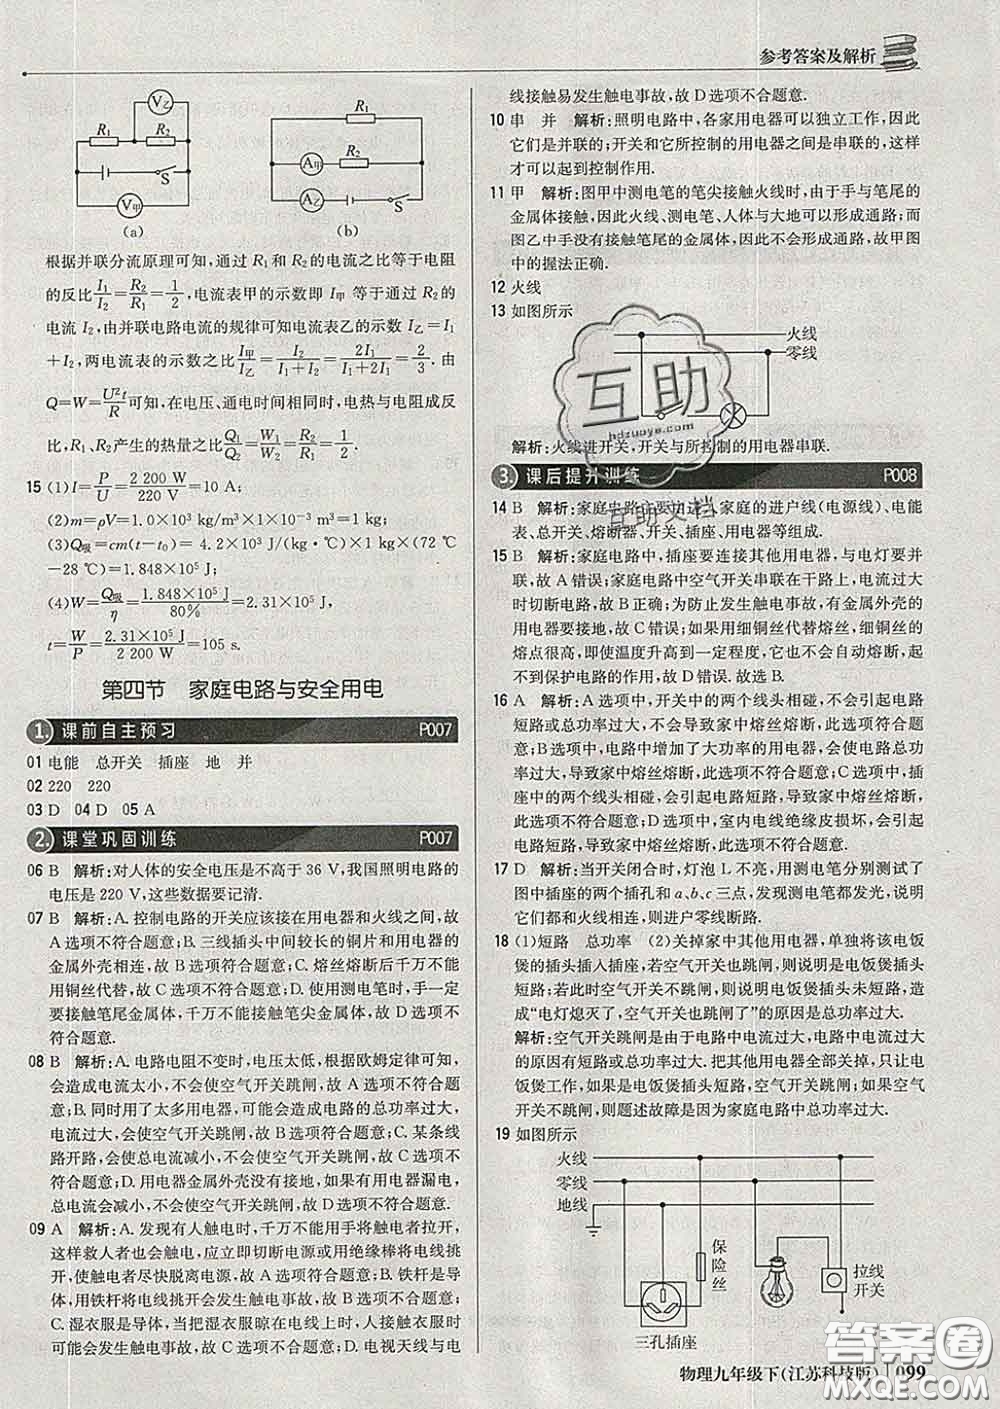 参考答案及解析
V乙
R₁ R₂
S
V甲
(a)
R₁
A甲 R₂
A乙 S
(b)
根据并联分流原理可知,通过 R₁ 和 R₂ 的电流之比等于电阻
的反比 I₁/I₂=R₂/R₁=1/2,电流表甲的示数即 I甲 等于通过 R₂ 的
电流 I₂,由并联电路电流的规律可知电流表乙的示数 I乙=I₁
+I₂,两电流表的示数之比 I甲/I乙=I₂/(I₁+I₂)=2I₁/(I₁+2I₁)=2/3. 由
Q=W=U²t/R 可知,在电压、通电时间相同时,电热与电阻成反
比,R₁、R₂ 产生的热量之比 Q₁/Q₂=W₁/W₂=R₂/R₁=1/2.
15 (1)I=P/U=2 200 W/220 V=10 A;
(2)m=ρV=1.0×10³ kg/m³×1×10⁻³ m³=1 kg;
(3)Q吸=cm(t-t₀)= 4.2×10³ J/(kg·℃)×1 kg×(72 ℃
-28 ℃)=1.848×10⁵ J;
(4)W=Q吸/η=1.848×10⁵ J/80%=2.31×10⁵ J,
t=W/P=2.31×10⁵ J/2 200 W=105 s.
第四节 家庭电路与安全用电
1. 课前自主预习 P007
01 电能 总开关 插座 地 并
02 220 220
03 D 04 D 05 A
2. 课堂巩固训练 P007
06 B 解析:对人体的安全电压是不高于 36 V,我国照明电路的
电压是 220 V,这些数据要记清.
07 B 解析:A. 控制电路的开关应该接在用电器和火线之间,故
A 选项不符合题意;B. 三线插头中间较长的铜片和用电器的
金属外壳相连,故 B 选项符合题意;C. 熔丝熔断后千万不能
用铜丝代替,故 C 选项不符合题意;D. 使用测电笔时,手一定
要接触笔尾金属体,千万不能接触笔尖金属体,故 D 选项不
符合题意.
08 B 解析:A. 电路电阻不变时,电压太低,根据欧姆定律可知,
会造成电流太小,不会使空气开关跳闸,故 A 选项不符合题
意;B. 同时用了太多用电器,可能会造成电路的总功率过大,
电流过大,会使空气开关跳闸,故 B 选项符合题意;C. 某条线
路开路,会使总电流减小,不会使空气开关跳闸,故 C 选项不
符合题意;D. 用电器金属外壳没有接地,如果用电器漏电,
总电流会减小,不会使空气开关跳闸,故 D 选项不符合题意.
09 A 解析:A. 发现有人触电时,千万不能用手将触电者拉开,
这样救人者也会触电,应立即切断电源或用绝缘棒将电线挑
开,使触电者尽快脱离电源,故 A 选项符合题意;B. 铁杆是导
体,用铁杆将电线挑开会发生触电事故,故 B 选项不符合题
意;C. 湿衣服是导体,当把湿衣服晾在电线上时,人接触衣服
时会发生触电事故,故 C 选项不合题意;D. 电视天线与电
线接触易发生触电事故,故 D 选项不合题意.
10 串 并 解析:照明电路中,各家用电器可以独立工作,因此
它们是并联的;开关和它所控制的用电器之间是串联的,这样
才可以起到控制作用.
11 甲 解析:图甲中测电笔的笔尖接触火线时,由于手与笔尾的
金属体接触,因此火线、测电笔、人体与大地可以形成通路;而
图乙中手没有接触笔尾的金属体,因此不会形成通路,故甲图
中的握法正确.
12 火线
13 如图所示
火线
零线
互助
hdzuoye.com
解析:火线进开关,开关与所控制的用电器串联.
3. 课后提升训练 P008
互助文档
14 B 解析:家庭电路主要由进入家庭的进户线(电源线)、电能
表、总开关、熔断器、开关、插座、用电器等组成.
15 B 解析:家庭电路中,插座要连接其他用电器,与电灯要并
联,故 A 错误;家庭电路中空气开关串联在干路上,电流过大
时切断电路,故 B 正确;为防止发生触电事故,有金属外壳的
用电器要接地,故 C 错误;如果用细铜丝代替熔丝,细铜丝的
熔点很高,即使温度升高到一定程度,不容易发生熔断,起
不到保护电路的作用,故 D 错误. 故选 B.
16 A 解析:A 选项中,开关中的两个线头相碰,不会引起电路
短路或总功率过大,不会导致家中熔丝熔断,故 A 选项符合
题意;B 选项中,电路中增加了大功率的用电器,会使电路总
功率过大,导致家中熔丝熔断,此选项不符合题意;C 选项中,
插座中的两个线头相碰,会引起电路短路,导致家中熔丝熔
断,此选项不符合题意;D 选项中,室内电线绝缘皮损坏,会引
起短路,导致家中熔丝熔断,此选项不符合题意.
17 D 解析:当开关闭合时,灯泡 L 不亮,用测电笔分别测试了
图中插座的两个插孔和 a、b、c 三点,发现测电笔都发光,说明
它们都和火线相连,则进户零线断路.
18 (1)短路 总功率 (2)关掉家中其他用电器,单独将该电饭
煲的插头插入插座,若空气开关也跳闸,说明是电饭煲插头
短路;若此时空气开关不跳闸,说明电饭煲插头未短路,造
成“电灯熄灭了,空气开关也跳闸了”的原因是总功率过大.
解析:空气开关跳闸是由于电路中电流过大,电路中电流过大
的原因有短路或总功率过大. 把其他用电器全部关掉,只让电
饭煲工作,如果是电饭煲插头短路,空气开关会跳闸;如果空
气开关不会跳闸,则题述故障是因为家庭电路中总功率过大.
19 如图所示
火线
零线
地线
保险丝
三孔插座
拉线
开关
答案圈
MXQE.COM
物理九年级下(江苏科技版) 099